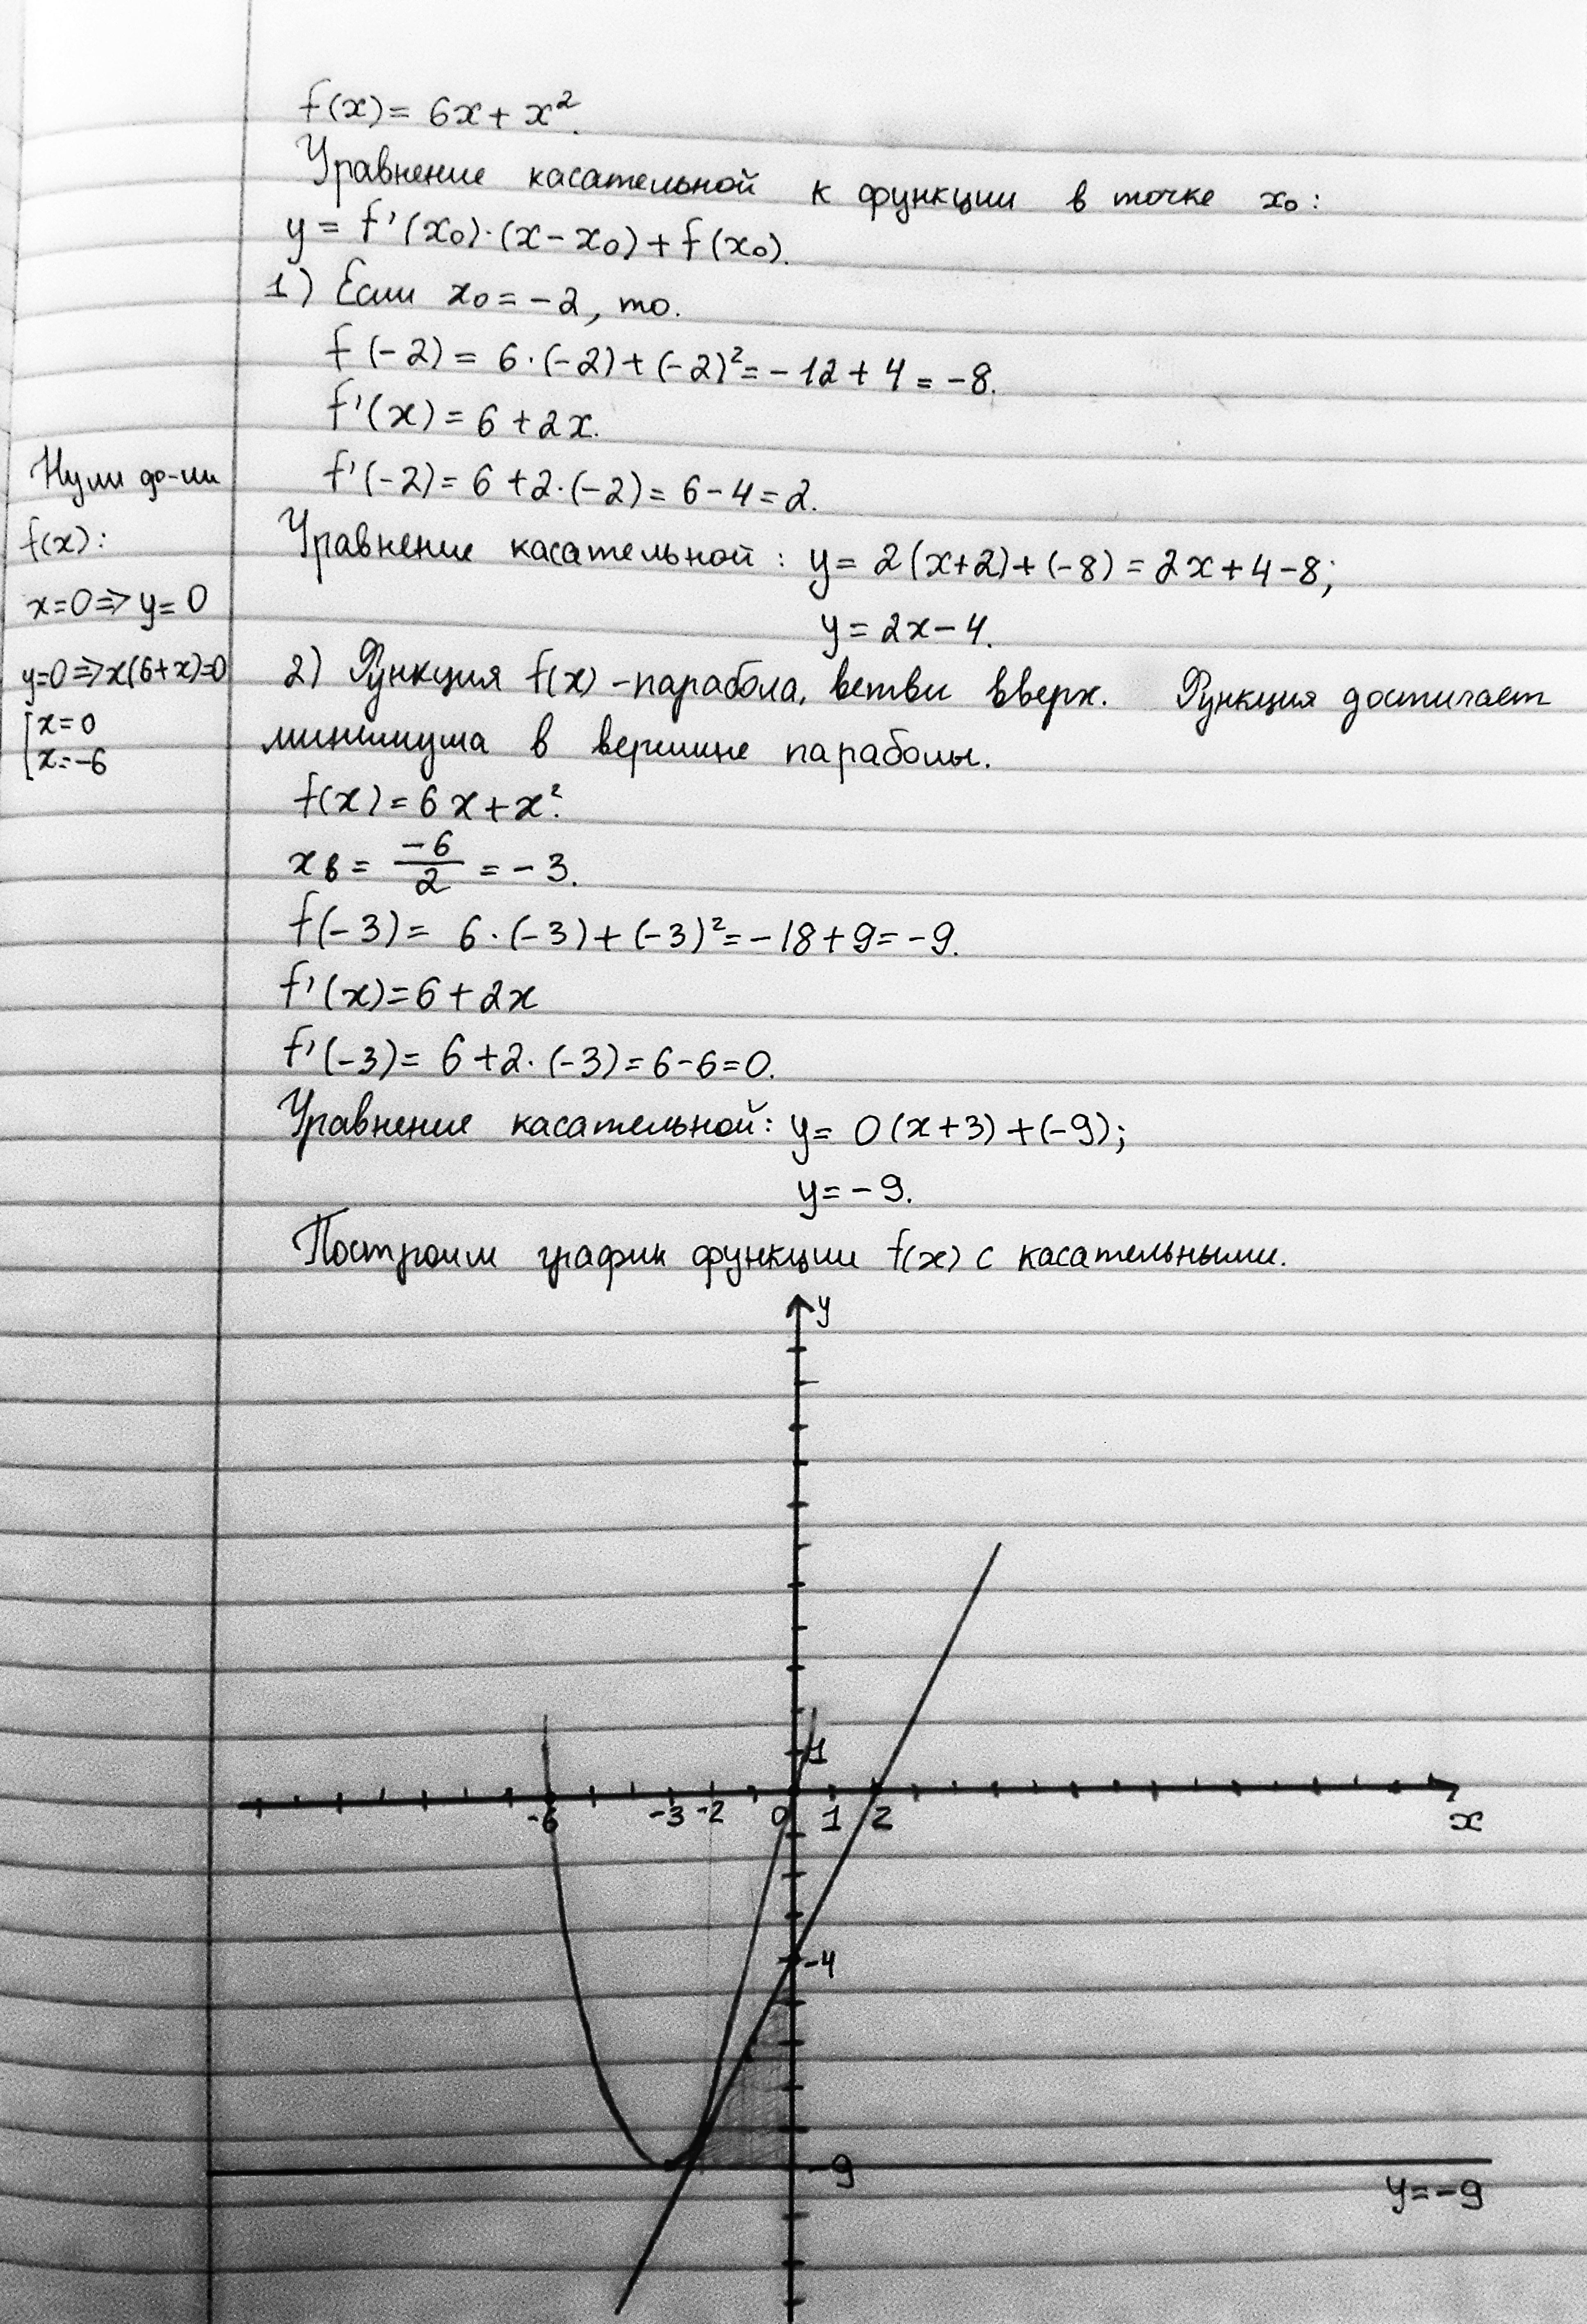 f(x) = 6x + x².
Уравнение касательной к функции в точке x₀:
y = f'(x₀)·(x - x₀) + f(x₀).
1) Если x₀ = -2, то.
f(-2) = 6·(-2) + (-2)² = -12 + 4 = -8.
f'(x) = 6 + 2x.
f'(-2) = 6 + 2·(-2) = 6 - 4 = 2.
Уравнение касательной: y = 2(x+2) + (-8) = 2x + 4 - 8;
y = 2x - 4.
Нули ф-ии
f(x):
x=0 ⇒ y=0
y=0 ⇒ x(6+x)=0
[x=0
[x=-6
2) Функция f(x) - парабола, ветви вверх. Функция достигает
минимума в вершине параболы.
f(x) = 6x + x².
xв = -6/2 = -3.
f(-3) = 6·(-3) + (-3)² = -18 + 9 = -9.
f'(x) = 6 + 2x
f'(-3) = 6 + 2·(-3) = 6 - 6 = 0.
Уравнение касательной: y = 0(x+3) + (-9);
y = -9.
Построим график функции f(x) с касательными.
y
1
-6 -3 -2 0 1 2 x
-4
-9
y = -9